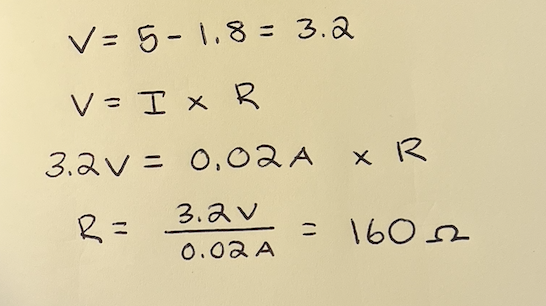 V = 5 - 1.8 = 3.2
V = I x R
3.2V = 0.02A x R
R = 3.2V / 0.02A = 160 Ω